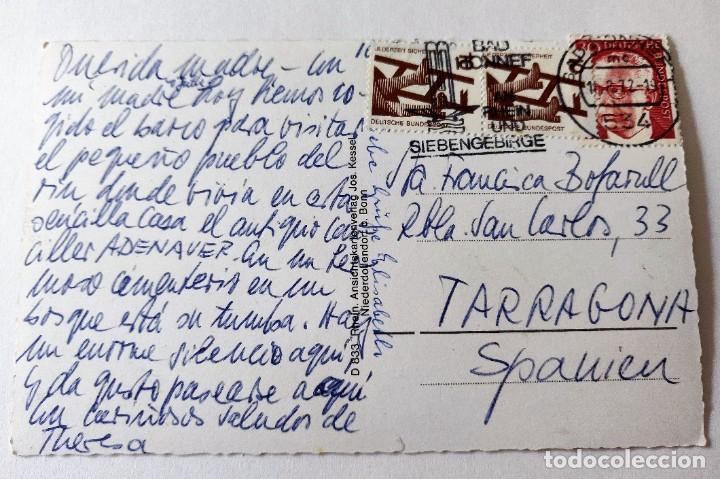 Querida madre – un
mi madre hoy hemos co-
gido el barco para visitar
el pequeño pueblo del
rin, donde vivía en esta
sencilla casa el antiguo can-
ciller ADENAUER. En un her-
moso cementerio en un
bosque está su tumba. Hay
un enorme silencio aquí
y da gusto pasearse aquí
un cariñosos saludos de
Theresa
Elisabeth
D 833 Rhein. Ansichtskartenverlag Jos. Kessel
Niederdollendorf b. Bonn
JEDERZEIT SICHERHEIT
DEUTSCHE BUNDESPOST
BUNDESPOST
BAD
HONNEF
RHEIN
UND
SIEBENGEBIRGE
534
Sta. Francisca Bofarull
Rbla. San Carlos, 33
TARRAGONA
Spanien
todocoleccion
todocoleccion.net